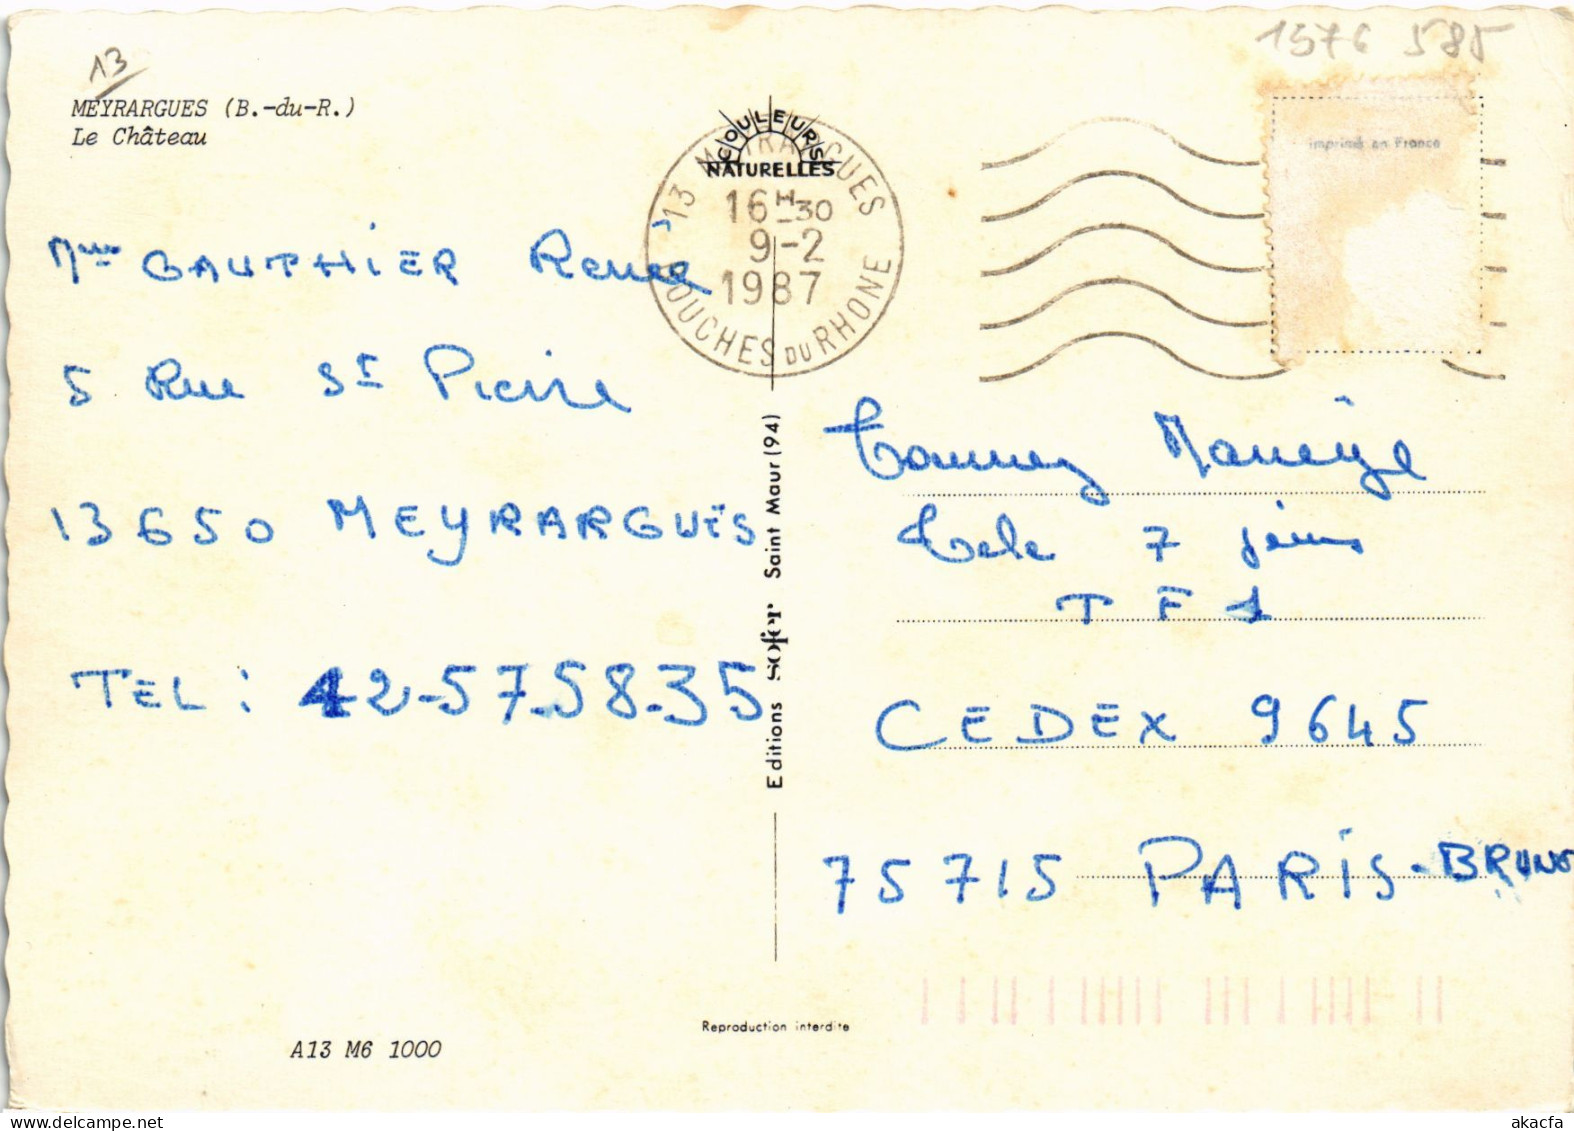 13
1576 585
MEYRARGUES (B.-du-R.)
Le Château
imprimé en France
COULEURS
NATURELLES
13 MEYRARGUES
16H30
9-2
1987
BOUCHES DU RHONE
Mme GAUTHIER Renée
5 Rue St Pierre
13650 MEYRARGUES
TEL : 42-57-58-35
Editions sofer Saint Maur (94)
Tele 7 jours
TF1
CEDEX 9645
75715 PARIS - BRUNO
Reproduction interdite
A13 M6 1000
akacfa